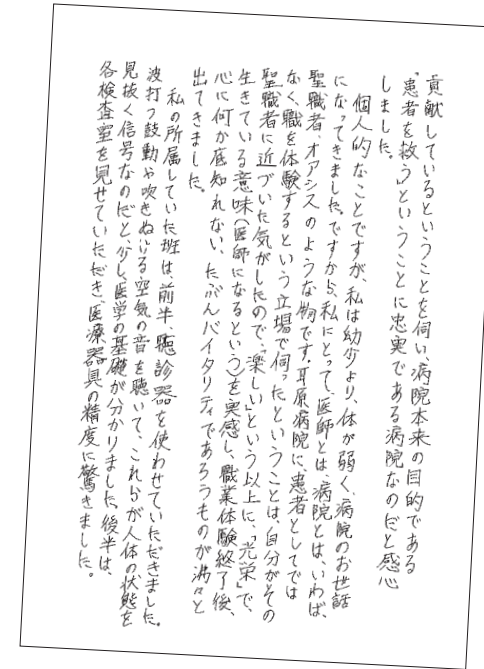 貢献しているということを伺い、病院本来の目的である
“患者を救う”ということに忠実である病院なのだと感心
しました。
個人的なことですが、私は幼少より、体が弱く、病院のお世話
になってきました。ですから、私にとって、医師とは、病院とは、いわば、
聖職者、オアシスのような物です。耳原病院に、患者としてでは
なく、職を体験するという立場で伺ったということは、自分がその
聖職者に近づいた気がしたので、「楽しい」という以上に、「光栄」で、
生きている意味(医師になるという)を実感し、職業体験終了後、
心に何か底知れない、たぶんバイタリティであろうものが沸々と
出てきました。
私の所属していた班は、前半、聴診器を使わせていただきました。
波打つ鼓動や吹きぬける空気の音を聴いて、これらが人体の状態を
見抜く信号なのだと、少し、医学の基礎が分かりました。後半は、
各検査室を見せていただき、医療器具の精度に驚きました。